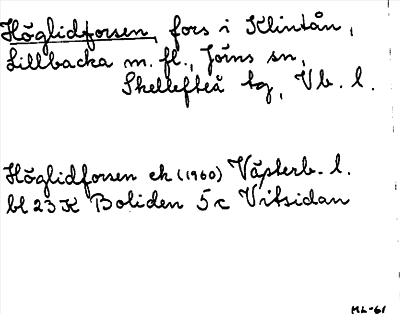 Höglidforsen, fors i Klintån,
Lillbacka m. fl., Jörns sn,
Skellefteå tg, Vb. l.
Höglidforsen ek (1960) Västerb. l.
bl 23 K Boliden 5 c Vitsidan
ML-61